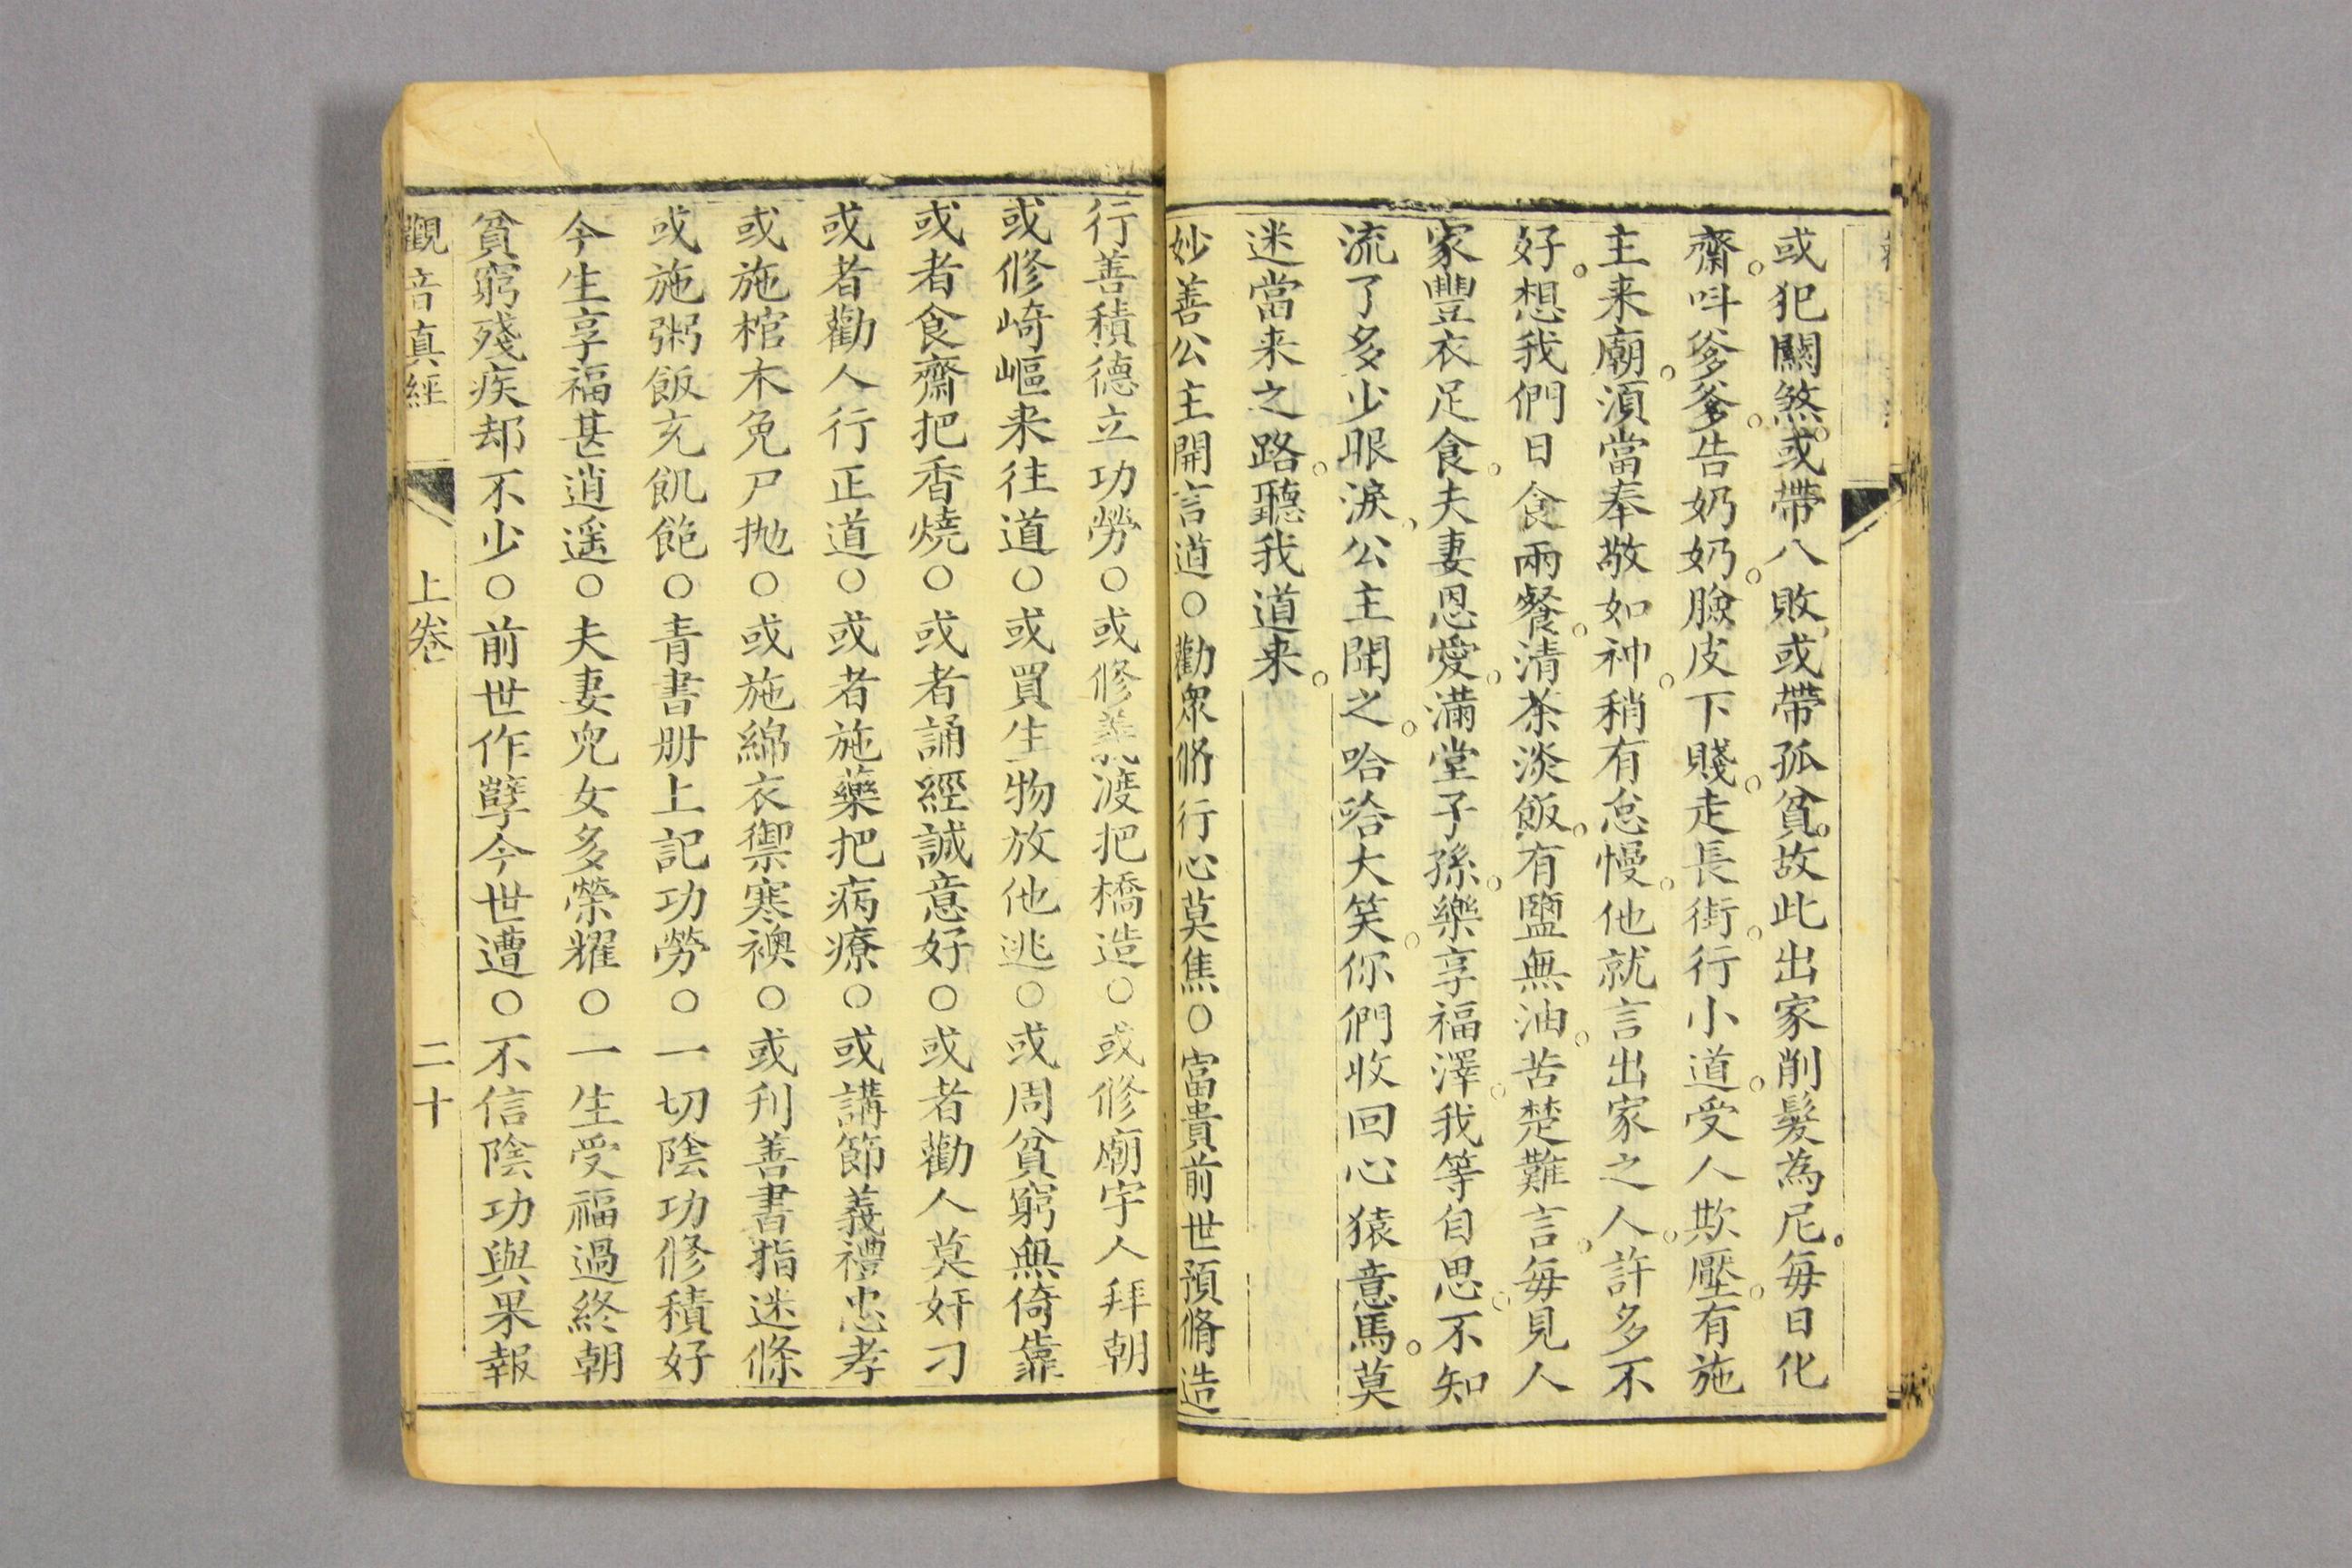 或犯關煞。或帶八敗。或帶孤貧。故此出家削髮為尼。每日化
齋。呌爹爹。告奶奶。臉皮下賤。走長街。行小道。受人欺壓。有施
主来廟。湏當奉敬如神。稍有怠慢。他就言出家之人。許多不
好。想我們日食兩餐。清茶淡飯。有鹽無油。苦楚難言。每見人
家豐衣足食。夫妻恩愛。滿堂子孫。樂享福澤。我等自思。不知
流了多少眼淚。公主聞之。哈哈大笑。你們收回心猿意馬。莫
迷當来之路。聽我道来。
妙善公主開言道○勸衆脩行心莫焦○富貴前世預脩造
行善積德立功勞○或修義渡把橋造○或修廟宇人拜朝
或修崎嶇来往道○或買生物放他逃○或周貧窮無倚靠
或者食齋把香燒○或者誦經誠意好○或者勸人莫奸刁
或者勸人行正道○或者施藥把病療○或講節義禮忠孝
或施棺木免尸抛○或施綿衣禦寒襖○或刋善書指迷條
或施粥飯充飢飽○青書册上記功勞○一切陰功修積好
今生享福甚逍遥○夫妻兒女多榮耀○一生受福過終朝
貧窮殘疾却不少○前世作孽今世遭○不信陰功與果報
觀音真經 上卷 二十